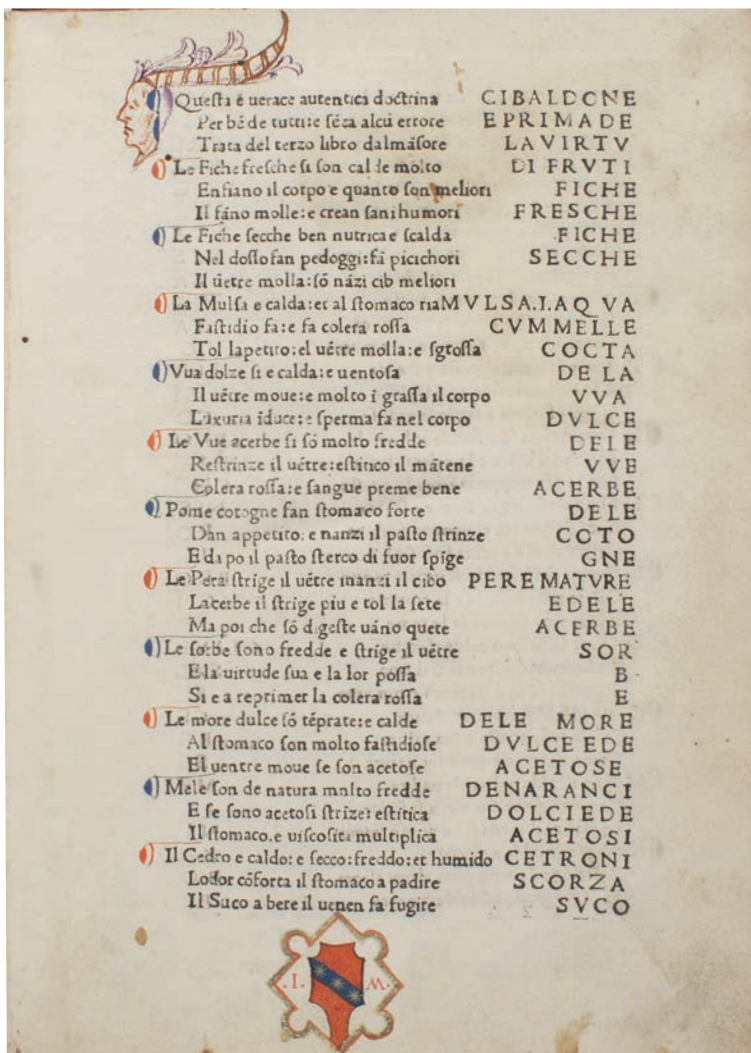 Questa e uerace autentica doctrina CIBALDONE
Per bē de tutti:e sēza alcū errore EPRIMADE
Trata del terzo libro dalmāsore LAVIRTV
Le Fiche fresche si son calde molto DI FRVTI
Enfiano il corpo e quanto son meliori FICHE
Il fāno molle:e crean sani humori FRESCHE
Le Fiche secche ben nutrica e scalda FICHE
Nel dosso fan pedoggi:fā picichori SECCHE
Il uētre molla:sō nāzi cib meliori
La Mulsa e calda:et al stomaco ria MVLSA.I.AQVA
Fastidio fa:e fa colera rossa CVM MELLE
Tol lapetito:el uētre molla:e sgrossa COCTA
Vua dolze si e calda:e uentosa DE LA
Il uētre moue:e molto ī grassa il corpo VVA
Luxuria īduce:e sperma fa nel corpo DVLCE
Le Vue acerbe si sō molto fredde DELE
Restrinze il uētre:estitico il mātene VVE
Colera rossa:e sangue preme bene ACERBE
Pome cotogne fan stomaco forte DELE
Dan appetito: e nanzi il pasto strinze COTO
E di po il pasto sterco di fuor spīge GNE
Le Pera strige il uētre inanzi il cibo PERE MATVRE
Lacerbe il strige piu e tol la sete EDELE
Ma poi che sō digeste uāno quete ACERBE
Le sorbe sono fredde e strige il uētre SOR
E la uirtude sua e la lor possa B
Si e a reprimer la colera rossa E
Le more dulce sō tēprate:e calde DELE MORE
Al stomaco son molto fastidiose DVLCE EDE
El uentre moue se son acetose ACETOSE
Mele son de natura molto fredde DENARANCI
E se sono acetosi strize: estitica DOLCIEDE
Il stomaco.e uiscosita multiplica ACETOSI
Il Cedro e caldo: e secco:freddo:et humido CETRONI
Lodor cōforta il stomaco a padire SCORZA
Il Suco a bere il uenen fa fugire SVCO
.I. M.